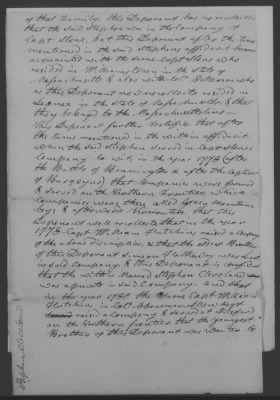 of that Family, this Deponent has no recollection
that the said Stephen was in the Company of
Capt Stone, but this Deponent after the time
mentioned in the said Stephens affidavit became
acquainted with the same Capt Stone who
resided in in the State of
Massachusetts & also with Colo Patterson who
as this Deponent now recollects resided in
Lenox in the State of Massachusetts & that
they belonged to the Massachusetts
this deponent further testifies that after
the time mentioned in the within affidavit
when the said Stephen served in Capt Stones
Company to wit in the year 1778 (after
the Battle of Bennington & after the capture
of Burgoyne) that Companies were formed
& served on the Northern frontiers which
Companies were then called Green Mountain
boys & afterwards that this
Deponent well recollects that in the year
1778 Capt William Hutchins raised a Company
of the above discription, & that the oldest Brother
of this Deponent Simeon Hathaway was
in said Company & this Deponent is confident
that the within Named Stephen Cleveland
was a private in said Company, and that
in the year 1781 the same Capt William
Hutchins in Colo Regt
raised a Company & served at
on the Northern frontier that the youngest
Brother of this Deponent was
Stephen Cleveland